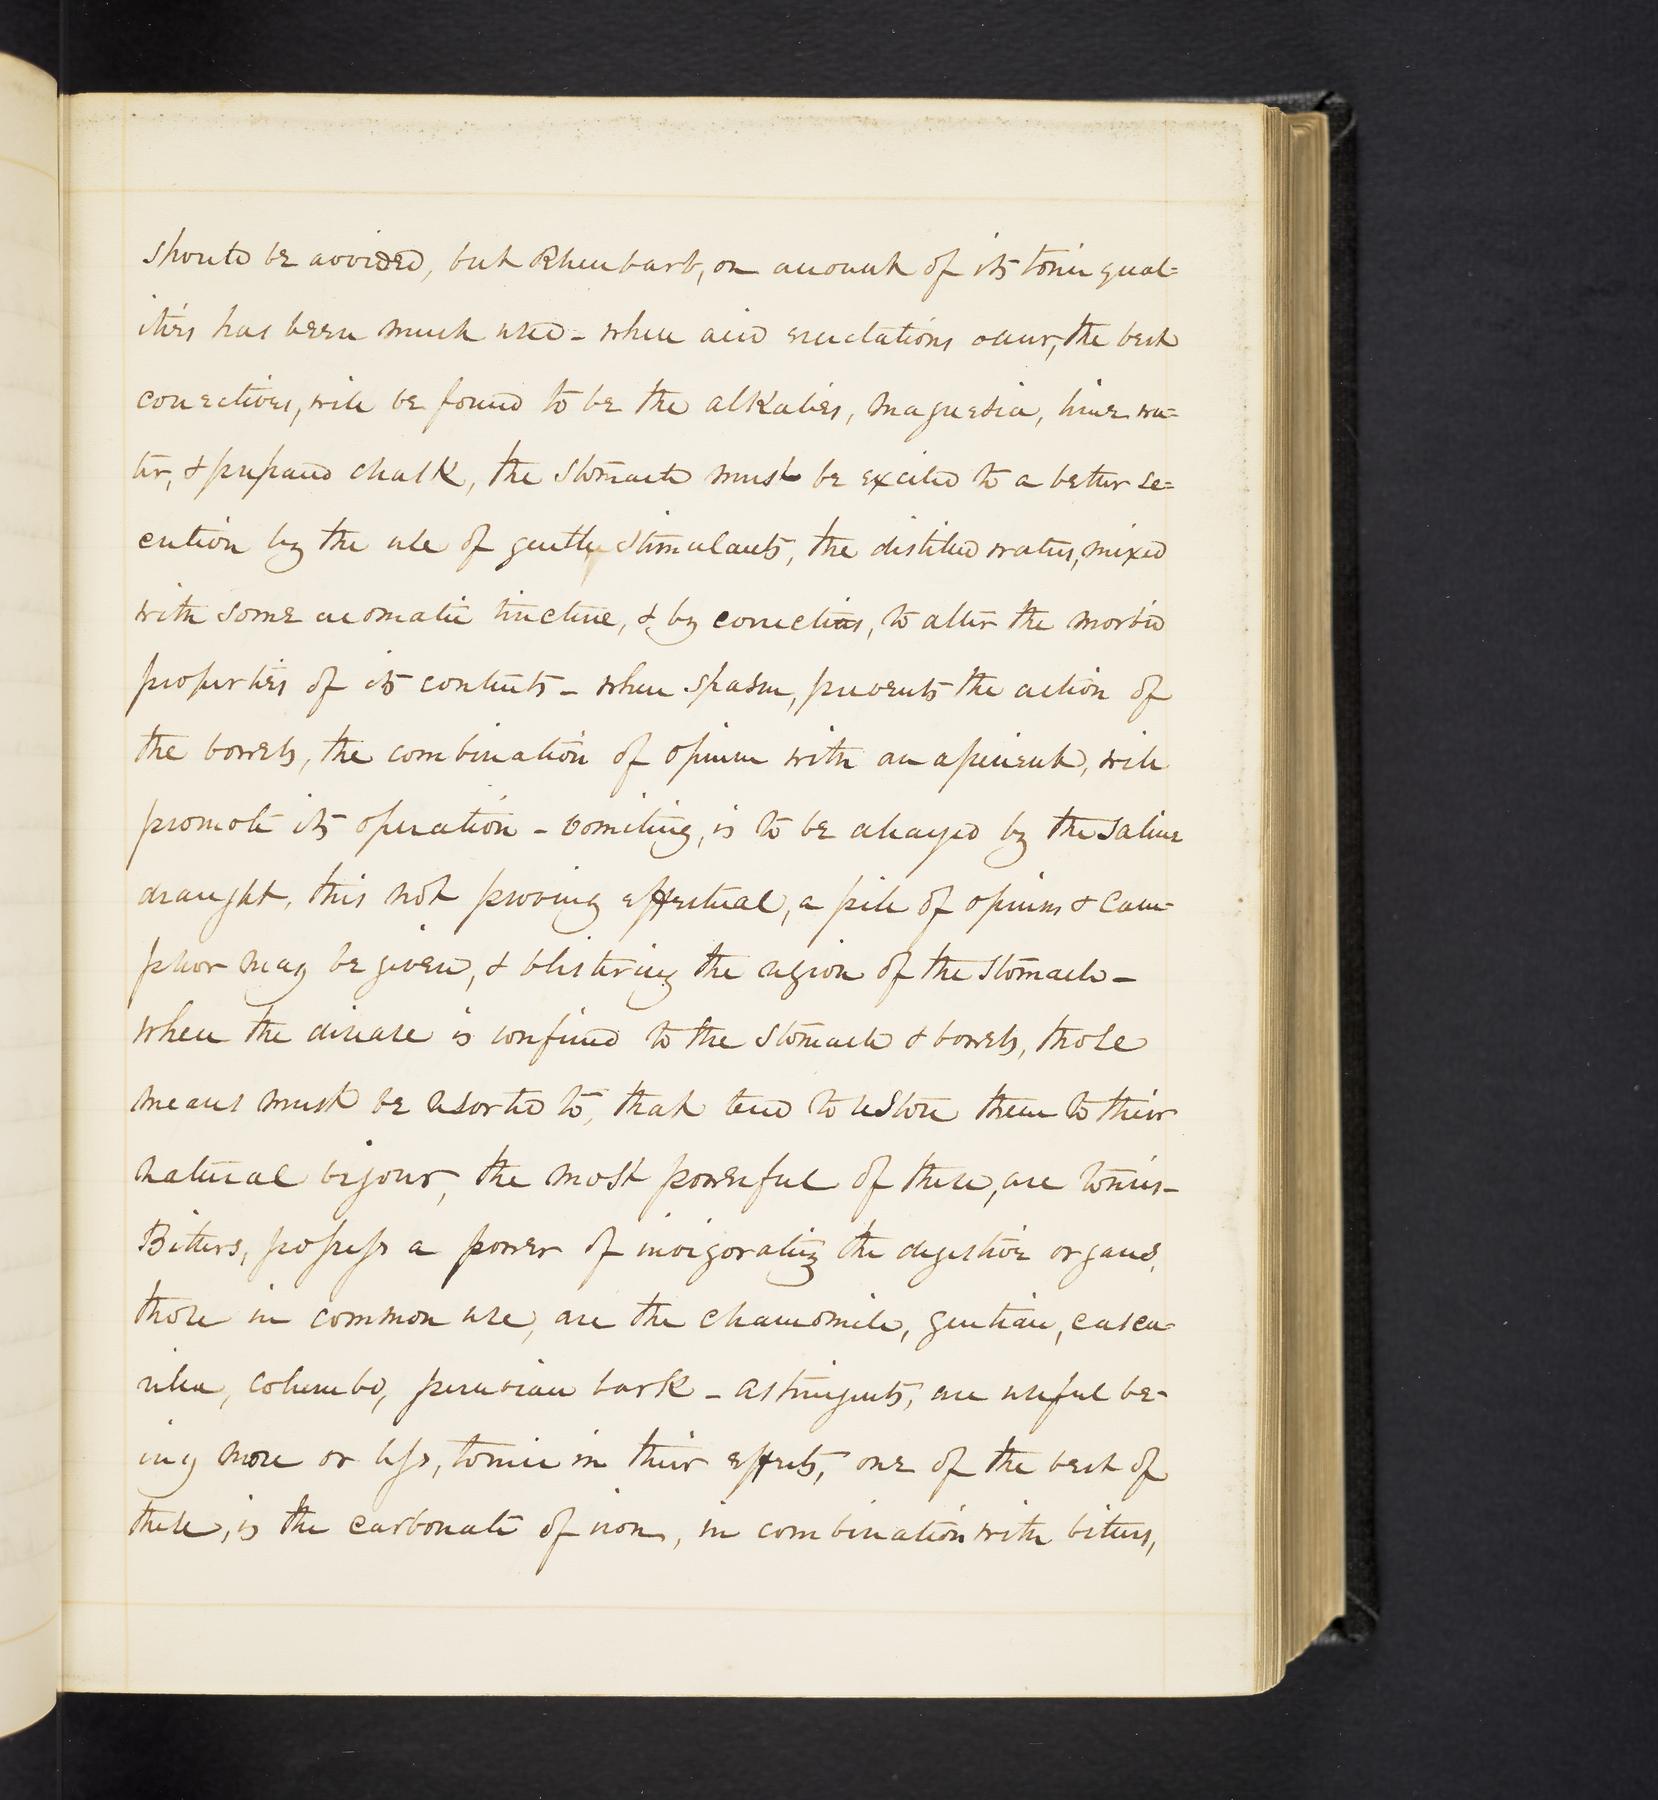 should be avoided, but Rheubarb, on account of its tonic qual=
ities has been much used - when acid eructations occur, the best
correctives, will be found to be the alkalies, magnesia, lime wa=
ter, & prepared chalk, the stomach must be excited to a better se=
cretion by the use of gentle stimulants, the distilled waters, mixed
with some aromatic tincture, & by correctives, to alter the morbid
properties of its contents - when spasm, prevents the action of
the bowels, the combination of opium with an aperient, will
promote its operation - vomiting, is to be allayed by the saline
draught, this not proving effectual, a pill of opium & Cam-
phor may be given, & blistering the region of the stomach -
when the disease is confined to the stomach & bowels, those
means must be resorted to, that tend to restore them to their
natural vigour, the most powerful of these, are tonics -
Bitters, possess a power of invigorating the digestive organs,
those in common use, are the chamomile, gentian, casca=
rilla, columbo, peruvian bark - astringents, are useful be-
ing more or less, tonic in their effects, one of the best of
these, is the carbonate of iron, in combination with bitters,